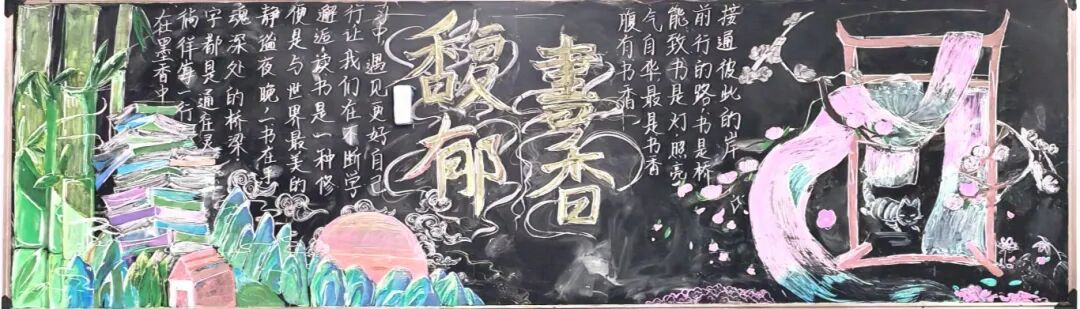 書香
馥郁
在墨香中
徜徉每一行
字都是通在灵
魂深处的桥梁
静谧夜晚一书在手
便是与世界最美的
邂逅读书是一种修
行让我们在不断学
习中遇见更好自己
腹有书香
气自华最是书香
能致书是灯照亮
前行的路书是桥
接通彼此的岸